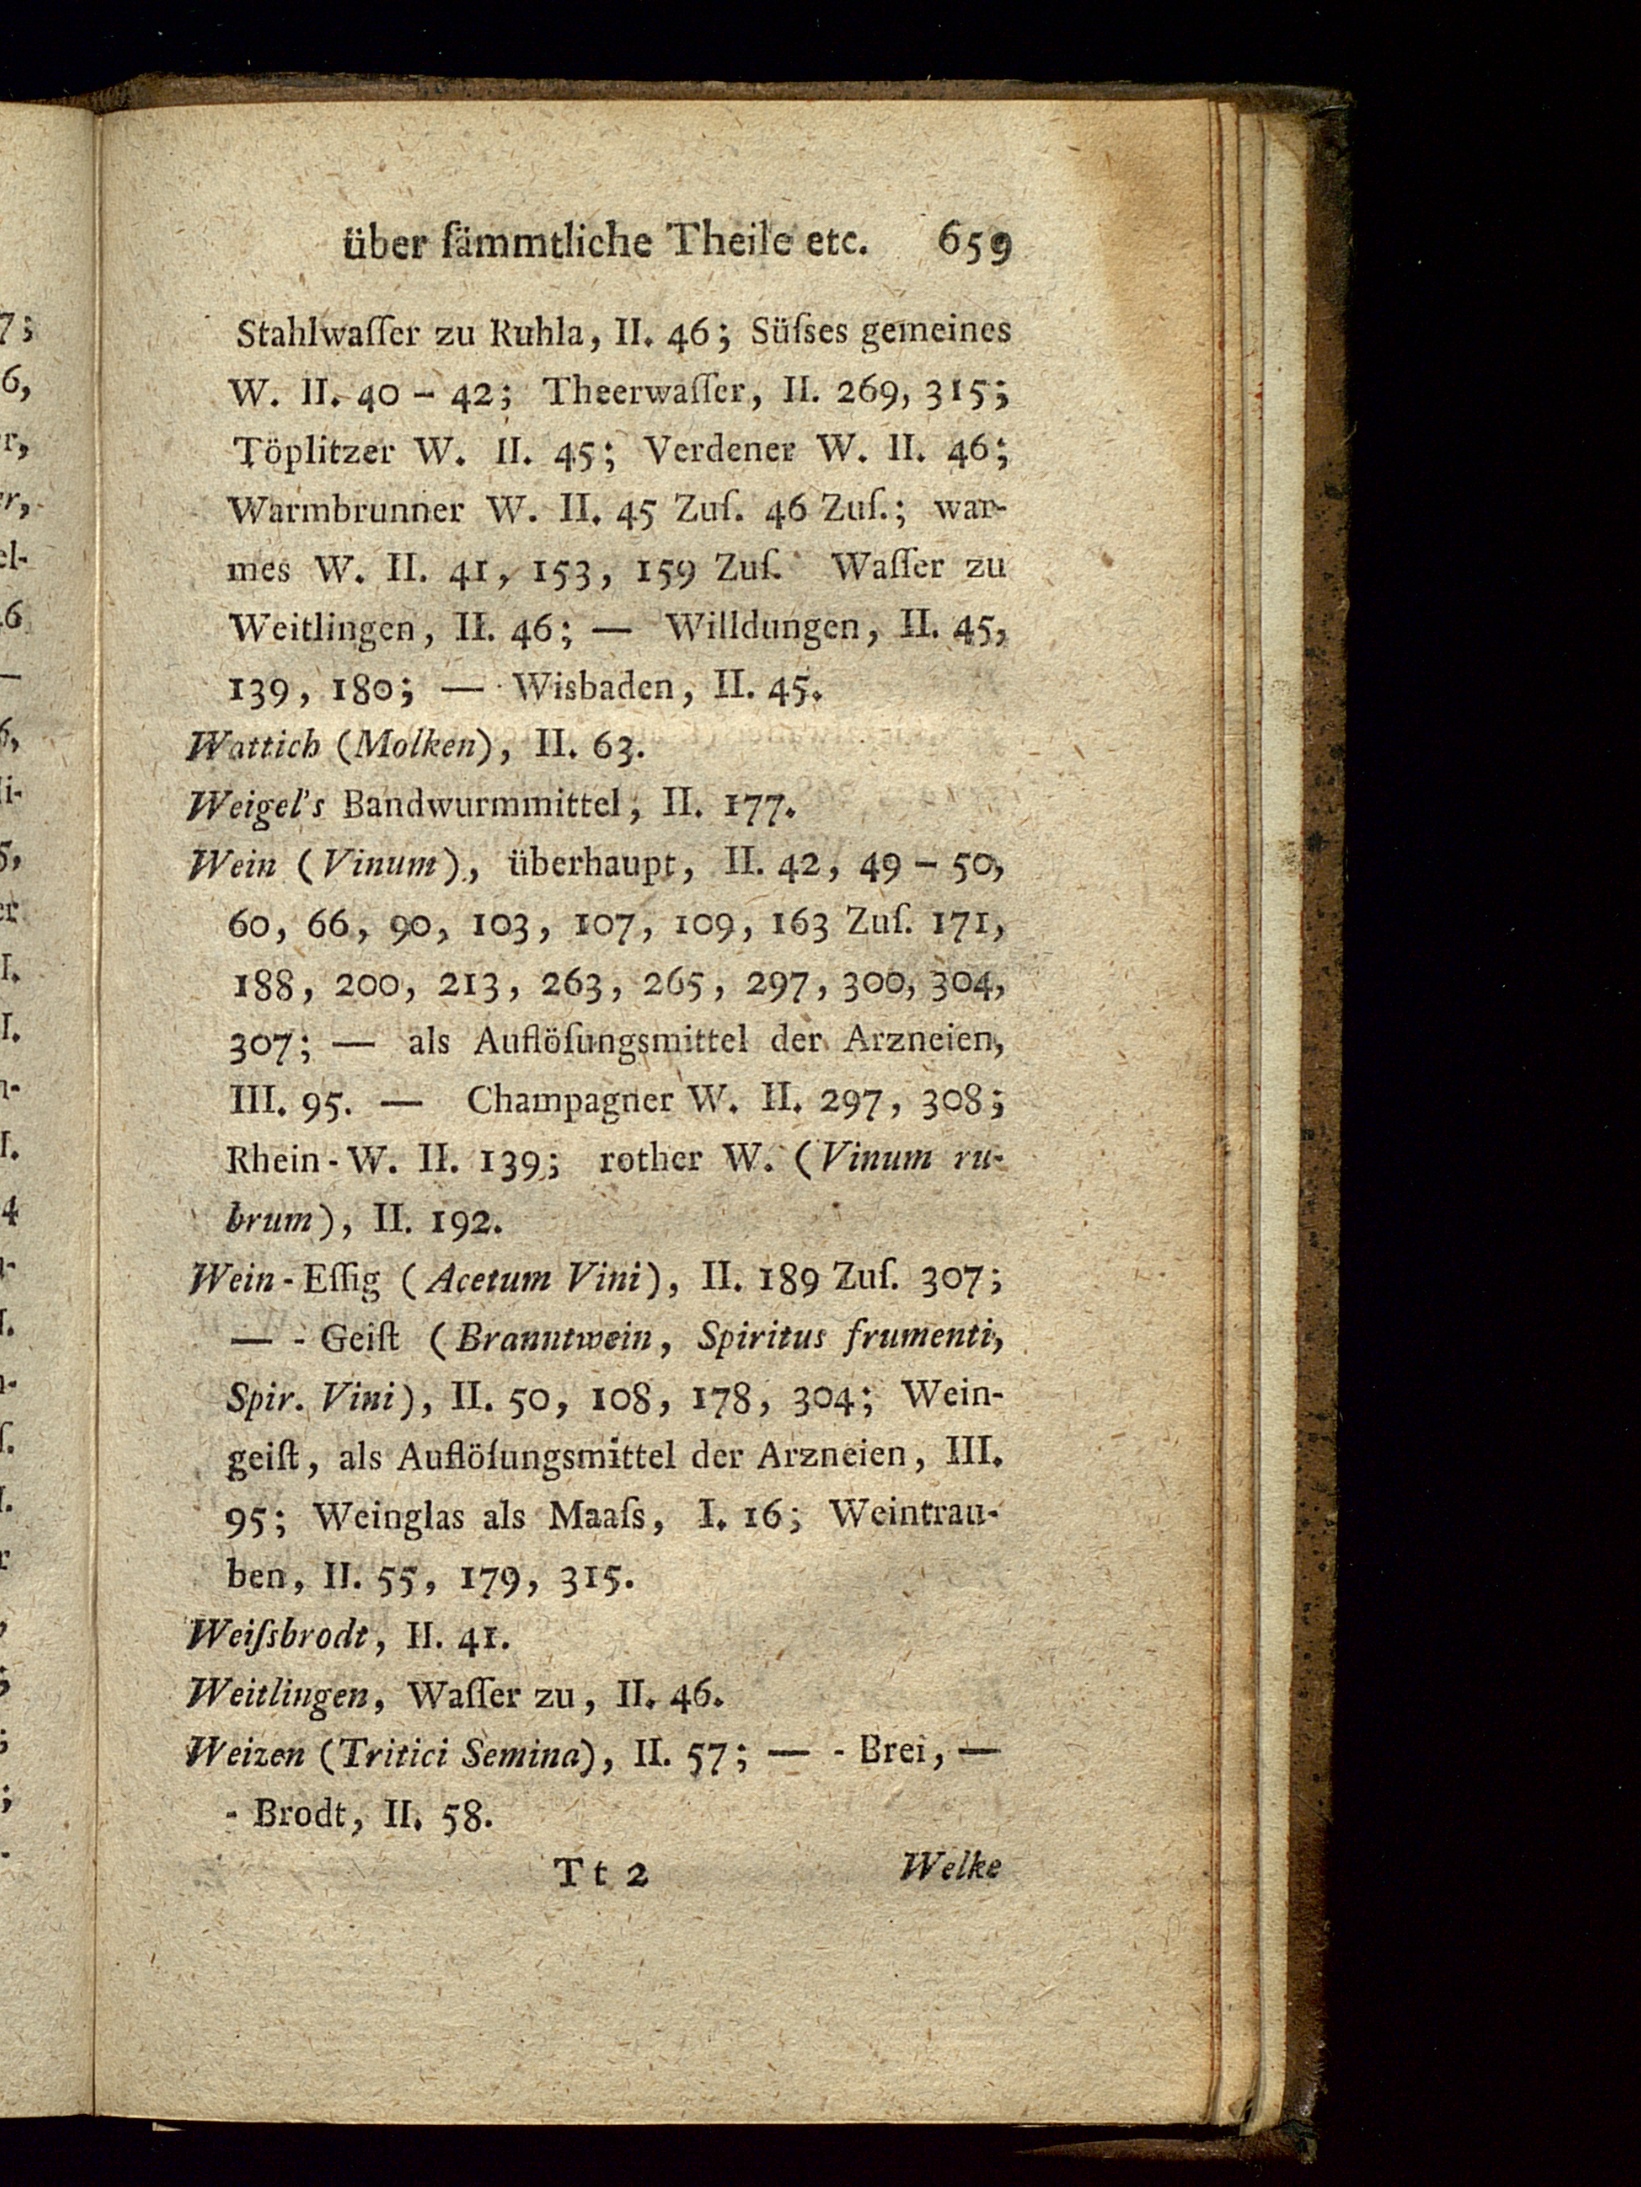 über ſämmtliche Theile etc. 659
Stahlwaſſer zu Ruhla, II. 46; Süſses gemeines
W. II. 40 – 42; Theerwaſſer, II. 269, 315;
Töplitzer W. II. 45; Verdener W. II. 46;
Warmbrunner W. II. 45 Zuſ. 46 Zuſ.; war-
mes W. II. 41, 153, 159 Zuſ. Waſſer zu
Weitlingen, II. 46; — Willdungen, II. 45,
139, 180; — Wisbaden, II. 45.
Wattich (Molken), II. 63.
Weigel's Bandwurmmittel, II. 177.
Wein (Vinum), überhaupt, II. 42, 49 – 50,
60, 66, 90, 103, 107, 109, 163 Zuſ. 171,
188, 200, 213, 263, 265, 297, 300, 304,
307; — als Auflöſungsmittel der Arzneien,
III. 95. — Champagner W. II. 297, 308;
Rhein-W. II. 139; rother W. (Vinum ru-
brum), II. 192.
Wein-Eſſig (Acetum Vini), II. 189 Zuſ. 307;
— - Geiſt (Branntwein, Spiritus frumenti,
Spir. Vini), II. 50, 108, 178, 304; Wein-
geiſt, als Auflöſungsmittel der Arzneien, III.
95; Weinglas als Maaſs, I. 16; Weintrau-
ben, II. 55, 179, 315.
Weiſsbrodt, II. 41.
Weitlingen, Waſſer zu, II. 46.
Weizen (Tritici Semina), II. 57; — - Brei, —
- Brodt, II. 58.
Tt 2 Welke